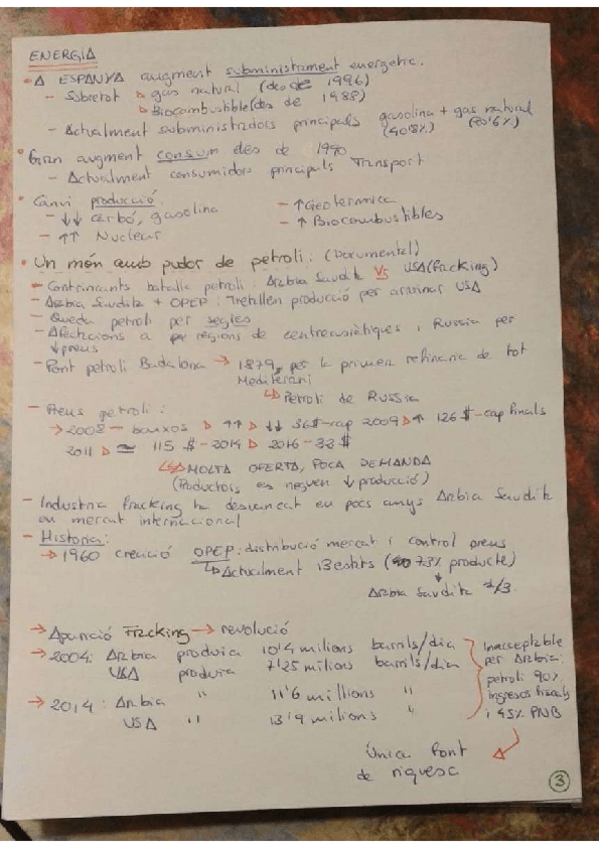 ENERGIA
• A ESPANYA augment subministrament energetic.
- Sobretot ▷ gas natural (des de 1996)
▷ Biocombustible (des de 1988)
- Actualment subministradors principals gasolina + gas natural
(40'8%) (20'6%)
• Gran augment consum des de 1990
- Actualment consumidors principals Transport
• Canvi producció:
- ↓↓ carbó, gasolina
- ↑↑ Nuclear
- ↑ Geotermica
- ↑ Biocombustibles
• Un món amb pudor de petroli: (Documental)
- Contrincants batalla petroli: Arabia Saudita VS USA (fracking)
- Arabia Saudita + OPEP: Treballen producció per arruinar USA
- Queda petroli per segles
- Afectacions a per regions de centreasiàtiques i Russia per
↓ preus
- Pont petroli Badalona → 1879, per la primera refineria de tot
Mediterrani
↳ Petroli de Russia
- Preus petroli:
→ 2008 - baixos ▷ ↑↑ ▷ ↓↓ 36$-cap 2009 ▷ ↑ 126$-cap finals
2011 ▷ ≃ 115 $ - 2014 ▷ 2016 - 33 $
↳ MOLTA OFERTA, POCA DEMANDA
(Productors es neguen ↓ producció)
- Industria fracking ha desvancat en pocs anys Arabia Saudita
en mercat internacional
- Historia:
→ 1960 creació OPEP: distribució mercat i control preus
↳ Actualment 13 estats (73% producte)
↓
Arabia Saudita 2/3
→ Aparició Fracking → revolució
→ 2004: Arabia produia 10'4 milions barrils/dia
USA produia 7'25 milions barrils/dia
→ 2014: Arabia " 11'6 millions "
USA " 13'9 milions "
Inacceptable
per Arabia:
petroli 90%
ingresos fiscals
i 45% PNB
Única font
de riquesa
3